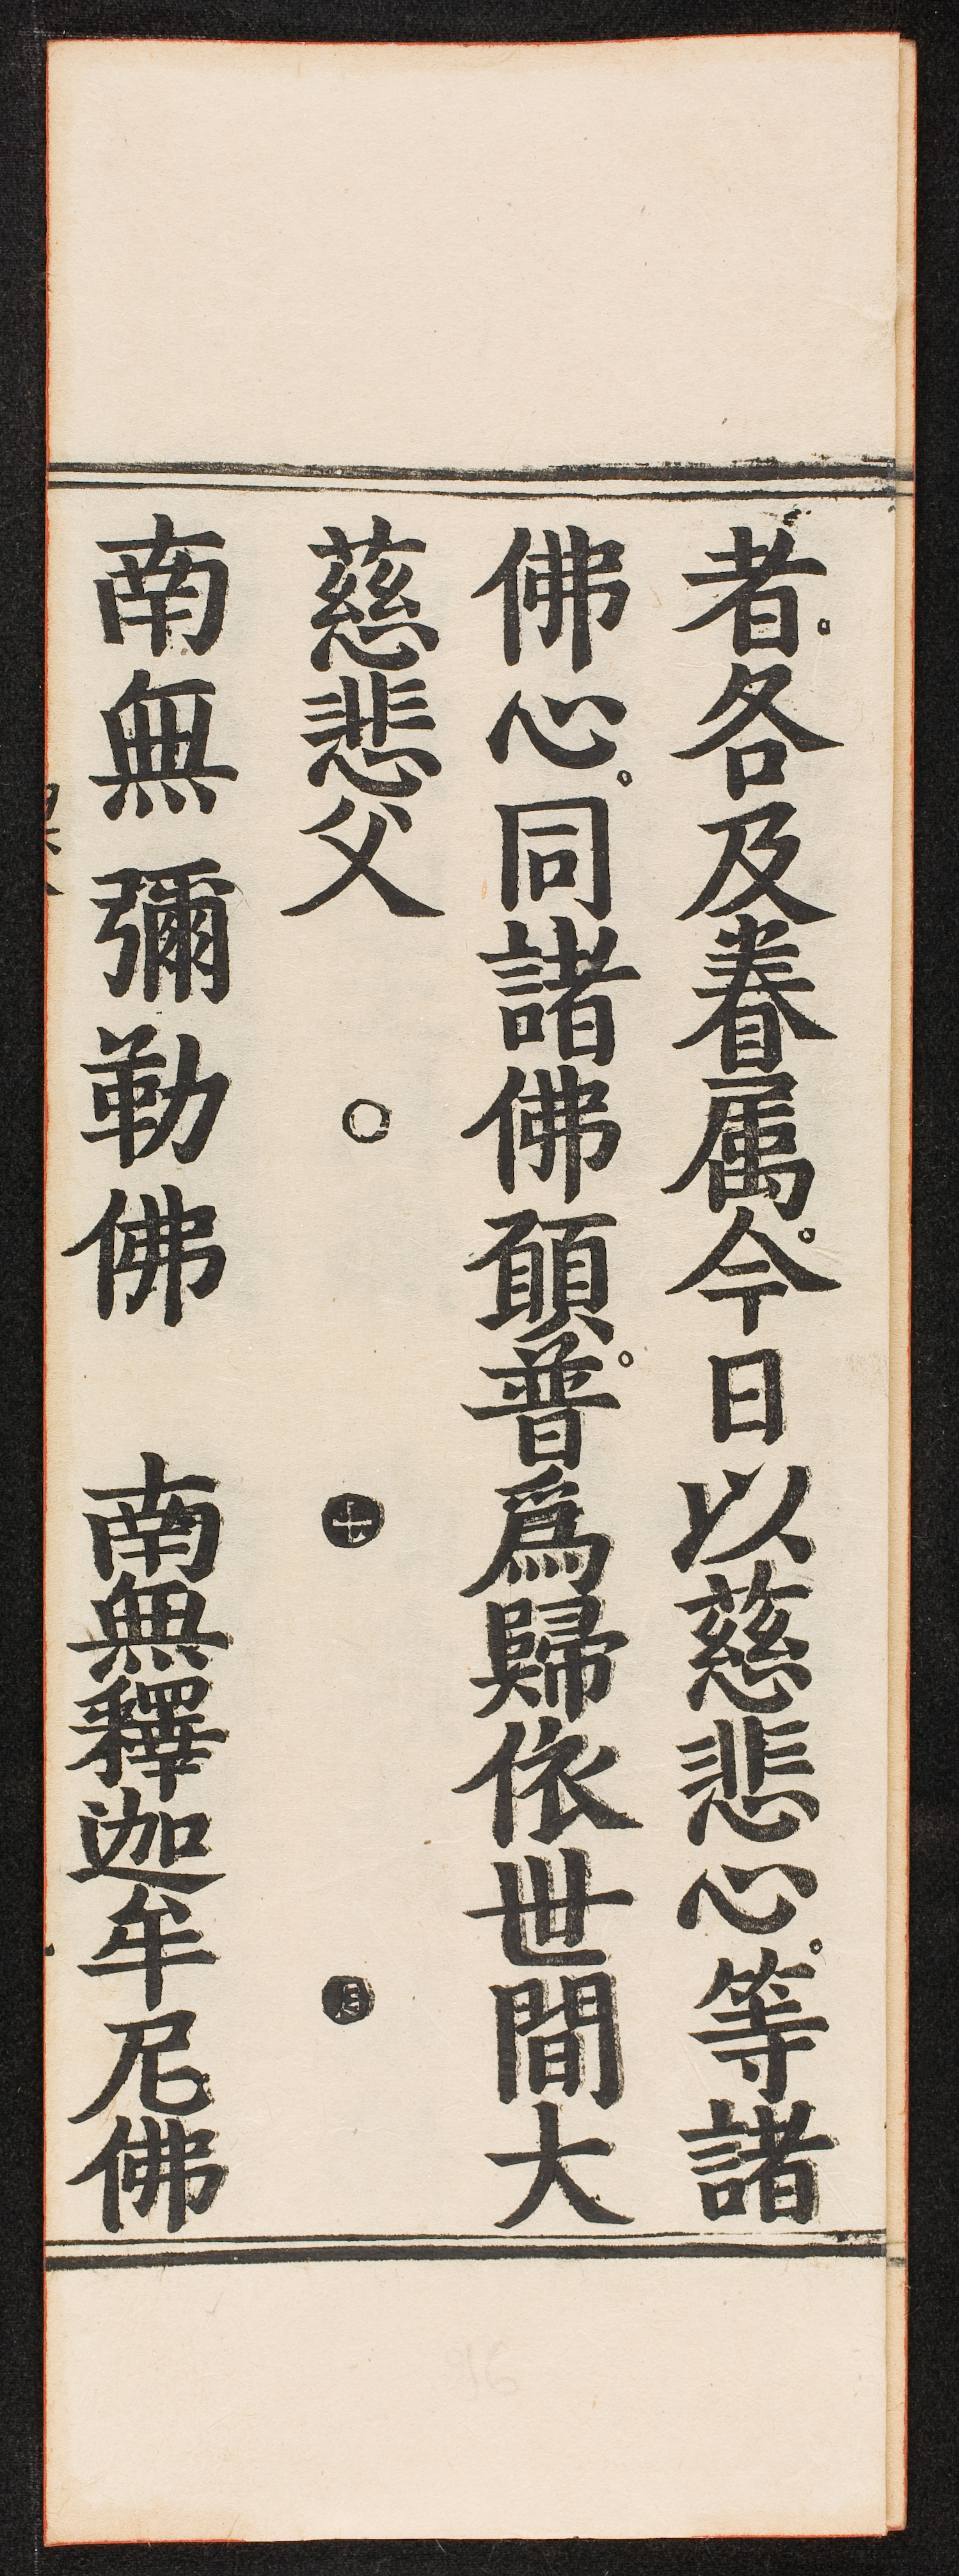 者。各及眷属。今日以慈悲心。等諸
佛心。同諸佛願。普爲歸依世間大
慈悲父
南無彌勒佛　南無釋迦牟尼佛